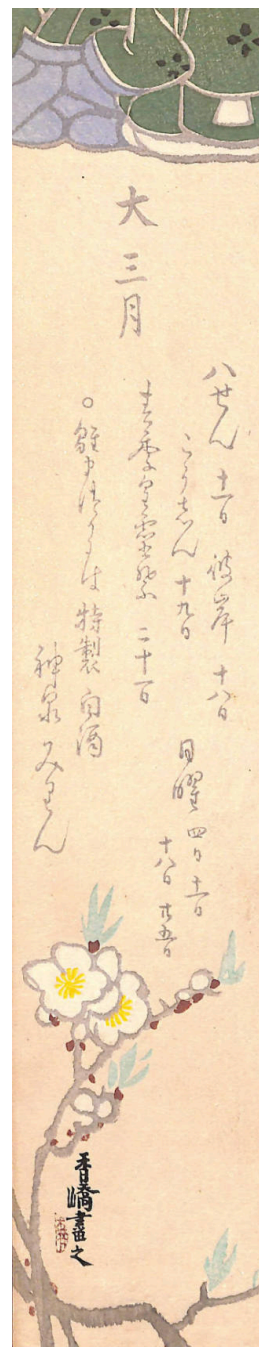 大 三月
八せん 十一日 彼岸 十八日
こうしん 十九日
日曜 四日 十一日
十八日 廿五日
春季皇霊祭 二十一日
○雛まつりには 特製 白酒
神泉 みりん
香嶠畫之